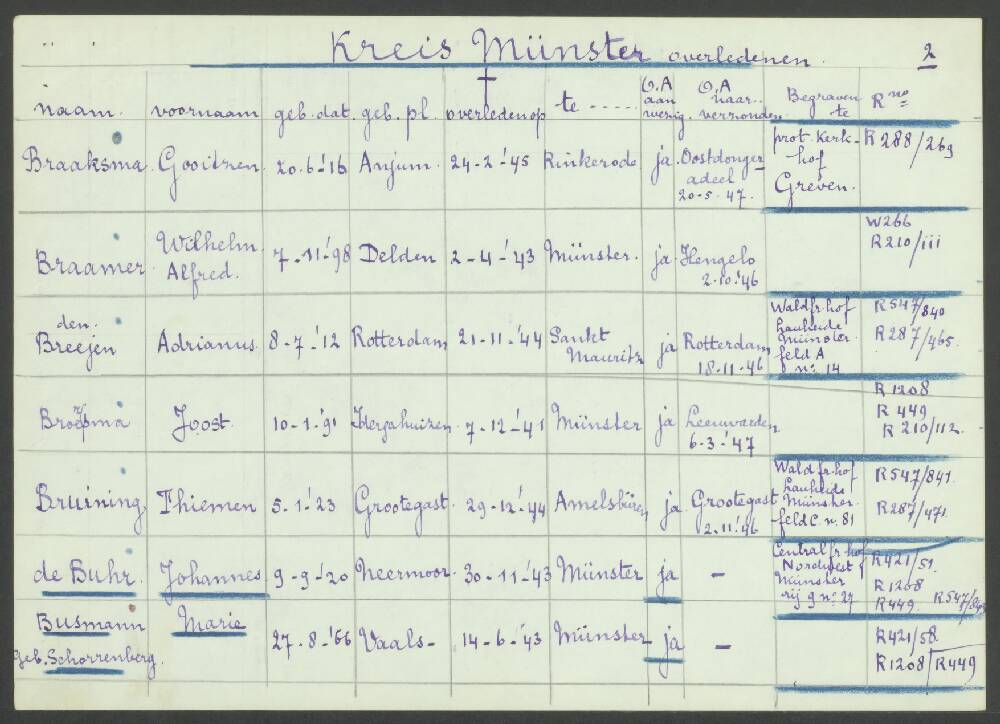 Kreis Münster overledenen. 2
naam. voornaam geb. dat. geb. pl. overleden op te ----- O.A aanwezig. O.A naar.. verzonden. Begraven te R no
Braaksma Gooitzen. 20-6-'16 Anjum. 24-2-'45 Rinkerode ja. Oostdongeradeel 20-5-'47. prot. Kerkhof Greven. R288/269
Braamer Wilhelm Alfred. 7-11-'98 Delden 2-4-'43 Münster. ja. Hengelo 2-10-'46 W266 R210/iii
den. Breejen Adrianus. 8-7-'12 Rotterdam 21-11-'44 Sankt Mauritz ja Rotterdam 18-11-'46 Waldfr.hof Lauheide Münster. feld A no 14 R547/840 R287/465.
Joost. 10-1-'91 7-12-'41 Münster ja Leeuwarden 6-3-'47 R1208 R449 R210/112.
Bruining Thiemen 5-1-'23 Grootegast. 29-12-'44 Amelsbüren ja. Grootegast 2-11-'46 Waldfr.hof Lauheide Münster. feld C. n. 81 R547/841. R287/471.
de Buhr. Johannes 9-9-'20 Neermoor. 30-11-'43 Münster ja - Centralfr.hof Nordwest Münster rij 9 no 27 R421/51. R1208 R449.
Busmann geb. Schorrenberg. Marie 27-8-'66 Vaals- 14-6-'43 Münster- ja - R421/58. R1208/R449